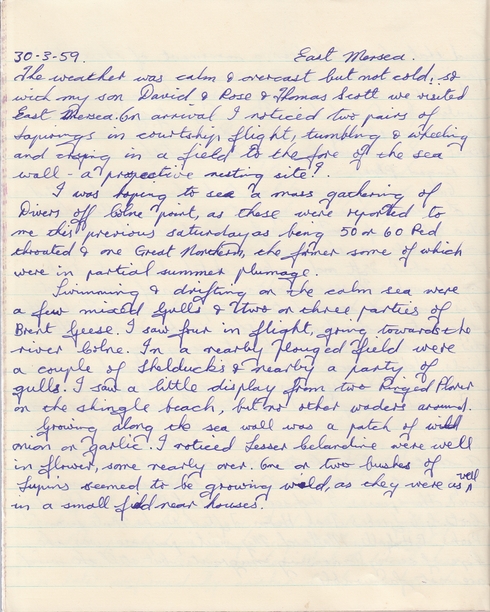 30-3-59. East Mersea.
The weather was calm & overcast but not cold, so
with my son David & Rose & Thomas Scott we visited
East Mersea. On arrival I noticed two pairs of
Lapwings in courtship flight, tumbling & wheeling
and chasing in a field to the fore of the sea
wall - a prospective nesting site?
I was hoping to see a mass gathering of
Divers off Colne Point, as these were reported to
me this previous saturday as being 50 or 60 Red
throated & one Great Northern, the former some of which
were in partial summer plumage.
Swimming & drifting on the calm sea were
a few mixed Gulls & two or three parties of
Brent Geese. I saw four in flight, going towards the
river Colne. In a nearby plouged field were
a couple of Shelducks & nearby a party of
gulls. I saw a little display from two Ringed Plover
on the shingle beach, but no other waders around.
Growing along the sea wall was a patch of wild
onion or garlic. I noticed Lesser Celandine were well
in flower, some nearly over. One or two bushes of
Lupins seemed to be growing wild, as they were as well
in a small field near houses.